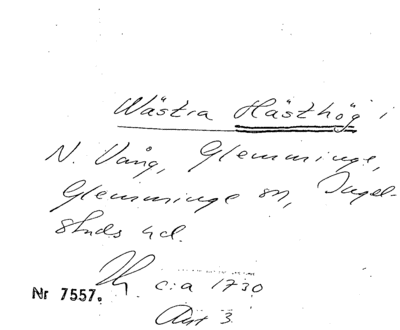 Wästra Hästhög i
N. Vång, Glemminge,
Glemminge sn, Ingel-
stads hd.
c:a 1730
Nr 7557.
Akt 3